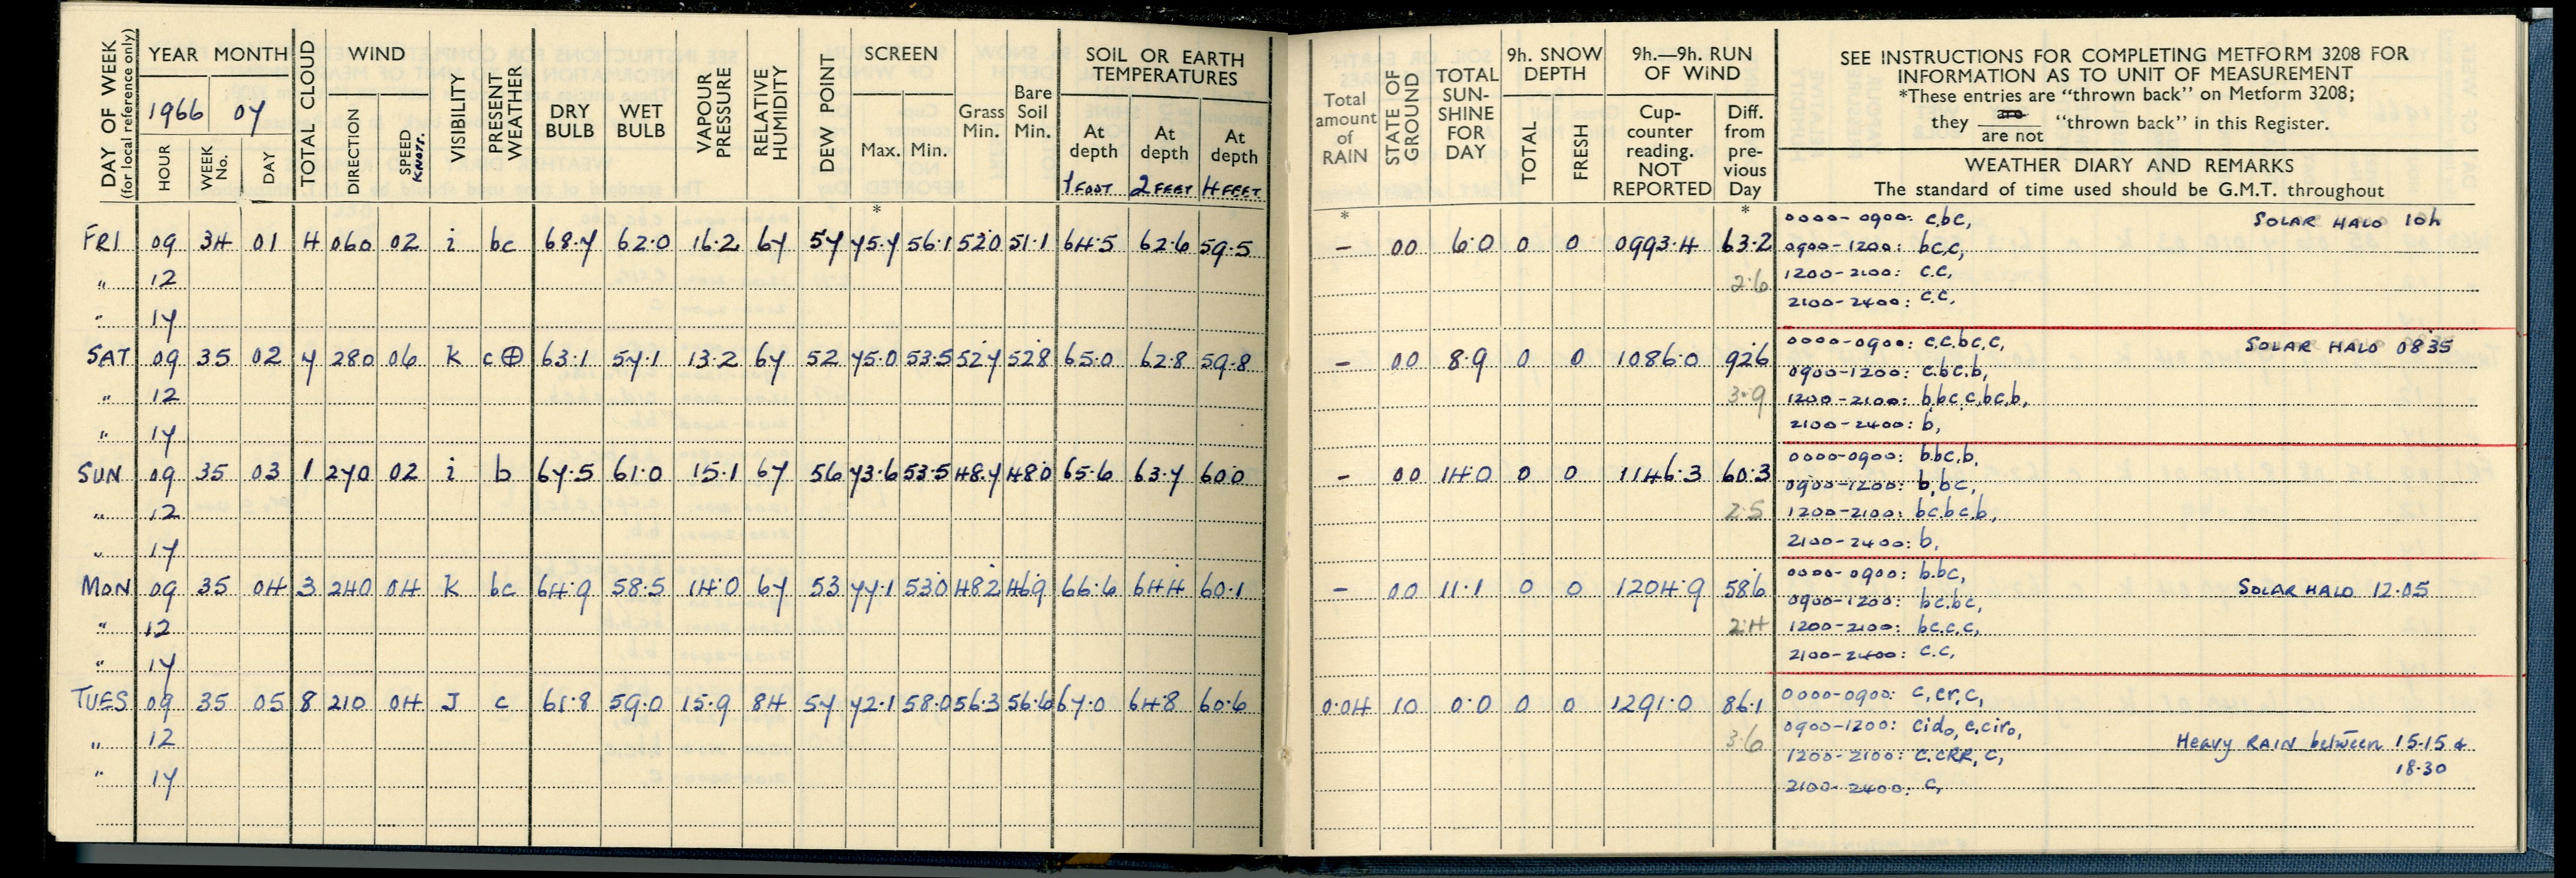 DAY OF WEEK
(for local reference only)
YEAR MONTH
1966 07
HOUR
WEEK No.
DAY
TOTAL CLOUD
WIND
DIRECTION
SPEED KNOTS.
VISIBILITY
PRESENT WEATHER
DRY BULB
WET BULB
VAPOUR PRESSURE
RELATIVE HUMIDITY
DEW POINT
SCREEN
Max. Min.
Grass Min.
Bare Soil Min.
SOIL OR EARTH TEMPERATURES
At depth 1 FOOT
At depth 2 FEET
At depth 4 FEET
Total amount of RAIN
STATE OF GROUND
TOTAL SUN-SHINE FOR DAY
9h. SNOW DEPTH
TOTAL
FRESH
9h.—9h. RUN OF WIND
Cup-counter reading. NOT REPORTED
Diff. from pre-vious Day
SEE INSTRUCTIONS FOR COMPLETING METFORM 3208 FOR
INFORMATION AS TO UNIT OF MEASUREMENT
*These entries are "thrown back" on Metform 3208;
they are / are not "thrown back" in this Register.
WEATHER DIARY AND REMARKS
The standard of time used should be G.M.T. throughout
* * *
FRI 09 34 01 4 060 02 i bc 68.7 62.0 16.2 67 57 75.7 56.1 52.0 51.1 64.5 62.6 59.5 – 00 6.0 0 0 0993.4 63.2
" 12 2.6
" 17
0000-0900: c,bc, SOLAR HALO 10h
0900-1200: bc,c,
1200-2100: c.c,
2100-2400: c.c,
SAT 09 35 02 7 280 06 k c⊕ 63.1 57.1 13.2 67 52 75.0 53.5 52.7 52.8 65.0 62.8 59.8 – 00 8.9 0 0 1086.0 92.6
" 12 3.9
" 17
0000-0900: c.c.bc.c, SOLAR HALO 0835
0900-1200: c.bc.b,
1200-2100: b,bc,c,bc,b,
2100-2400: b,
SUN 09 35 03 1 270 02 i b 67.5 61.0 15.1 67 56 73.6 53.5 48.7 48.0 65.6 63.7 60.0 – 00 14.0 0 0 1146.3 60.3
" 12 2.5
" 17
0000-0900: b.bc,b,
0900-1200: b,bc,
1200-2100: bc.bc.b,
2100-2400: b,
MON 09 35 04 3 240 04 k bc 64.9 58.5 14.0 67 53 77.1 53.0 48.2 46.9 66.6 64.4 60.1 – 00 11.1 0 0 1204.9 58.6
" 12 2.4
" 17
0000-0900: b.bc, SOLAR HALO 12.05
0900-1200: bc.bc,
1200-2100: bc.c.c,
2100-2400: c.c,
TUES 09 35 05 8 210 04 J c 61.8 59.0 15.9 84 57 72.1 58.0 56.3 56.6 67.0 64.8 60.6 0.04 10 0.0 0 0 1291.0 86.1
" 12 3.6
" 17
0000-0900: c,cr,c,
0900-1200: cido, c,ciro,
1200-2100: c.cRR, c, Heavy RAIN between 15.15 & 18.30
2100-2400: c,